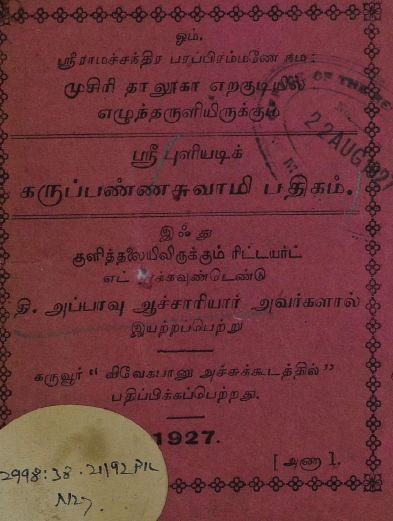 ஓம்.
ஸ்ரீராமச்சந்திர பரப்பிரம்மணே நம:
முசிரி தாலூகா எறகுடியில்
எழுந்தருளியிருக்கும்
ஸ்ரீ புளியடிக்
கருப்பண்ணசுவாமி பதிகம்.
இஃது
குளித்தலையிலிருக்கும் ரிட்டயர்ட்
எட்
தி. அப்பாவு ஆச்சாரியார் அவர்களால்
இயற்றப்பெற்று
கருவூர் “விவேகபானு அச்சுக்கூடத்தில்”
பதிப்பிக்கப்பெற்றது.
1927.
[அணா 1.
OF THE RE
22 AUG 1927
2998:38
N27